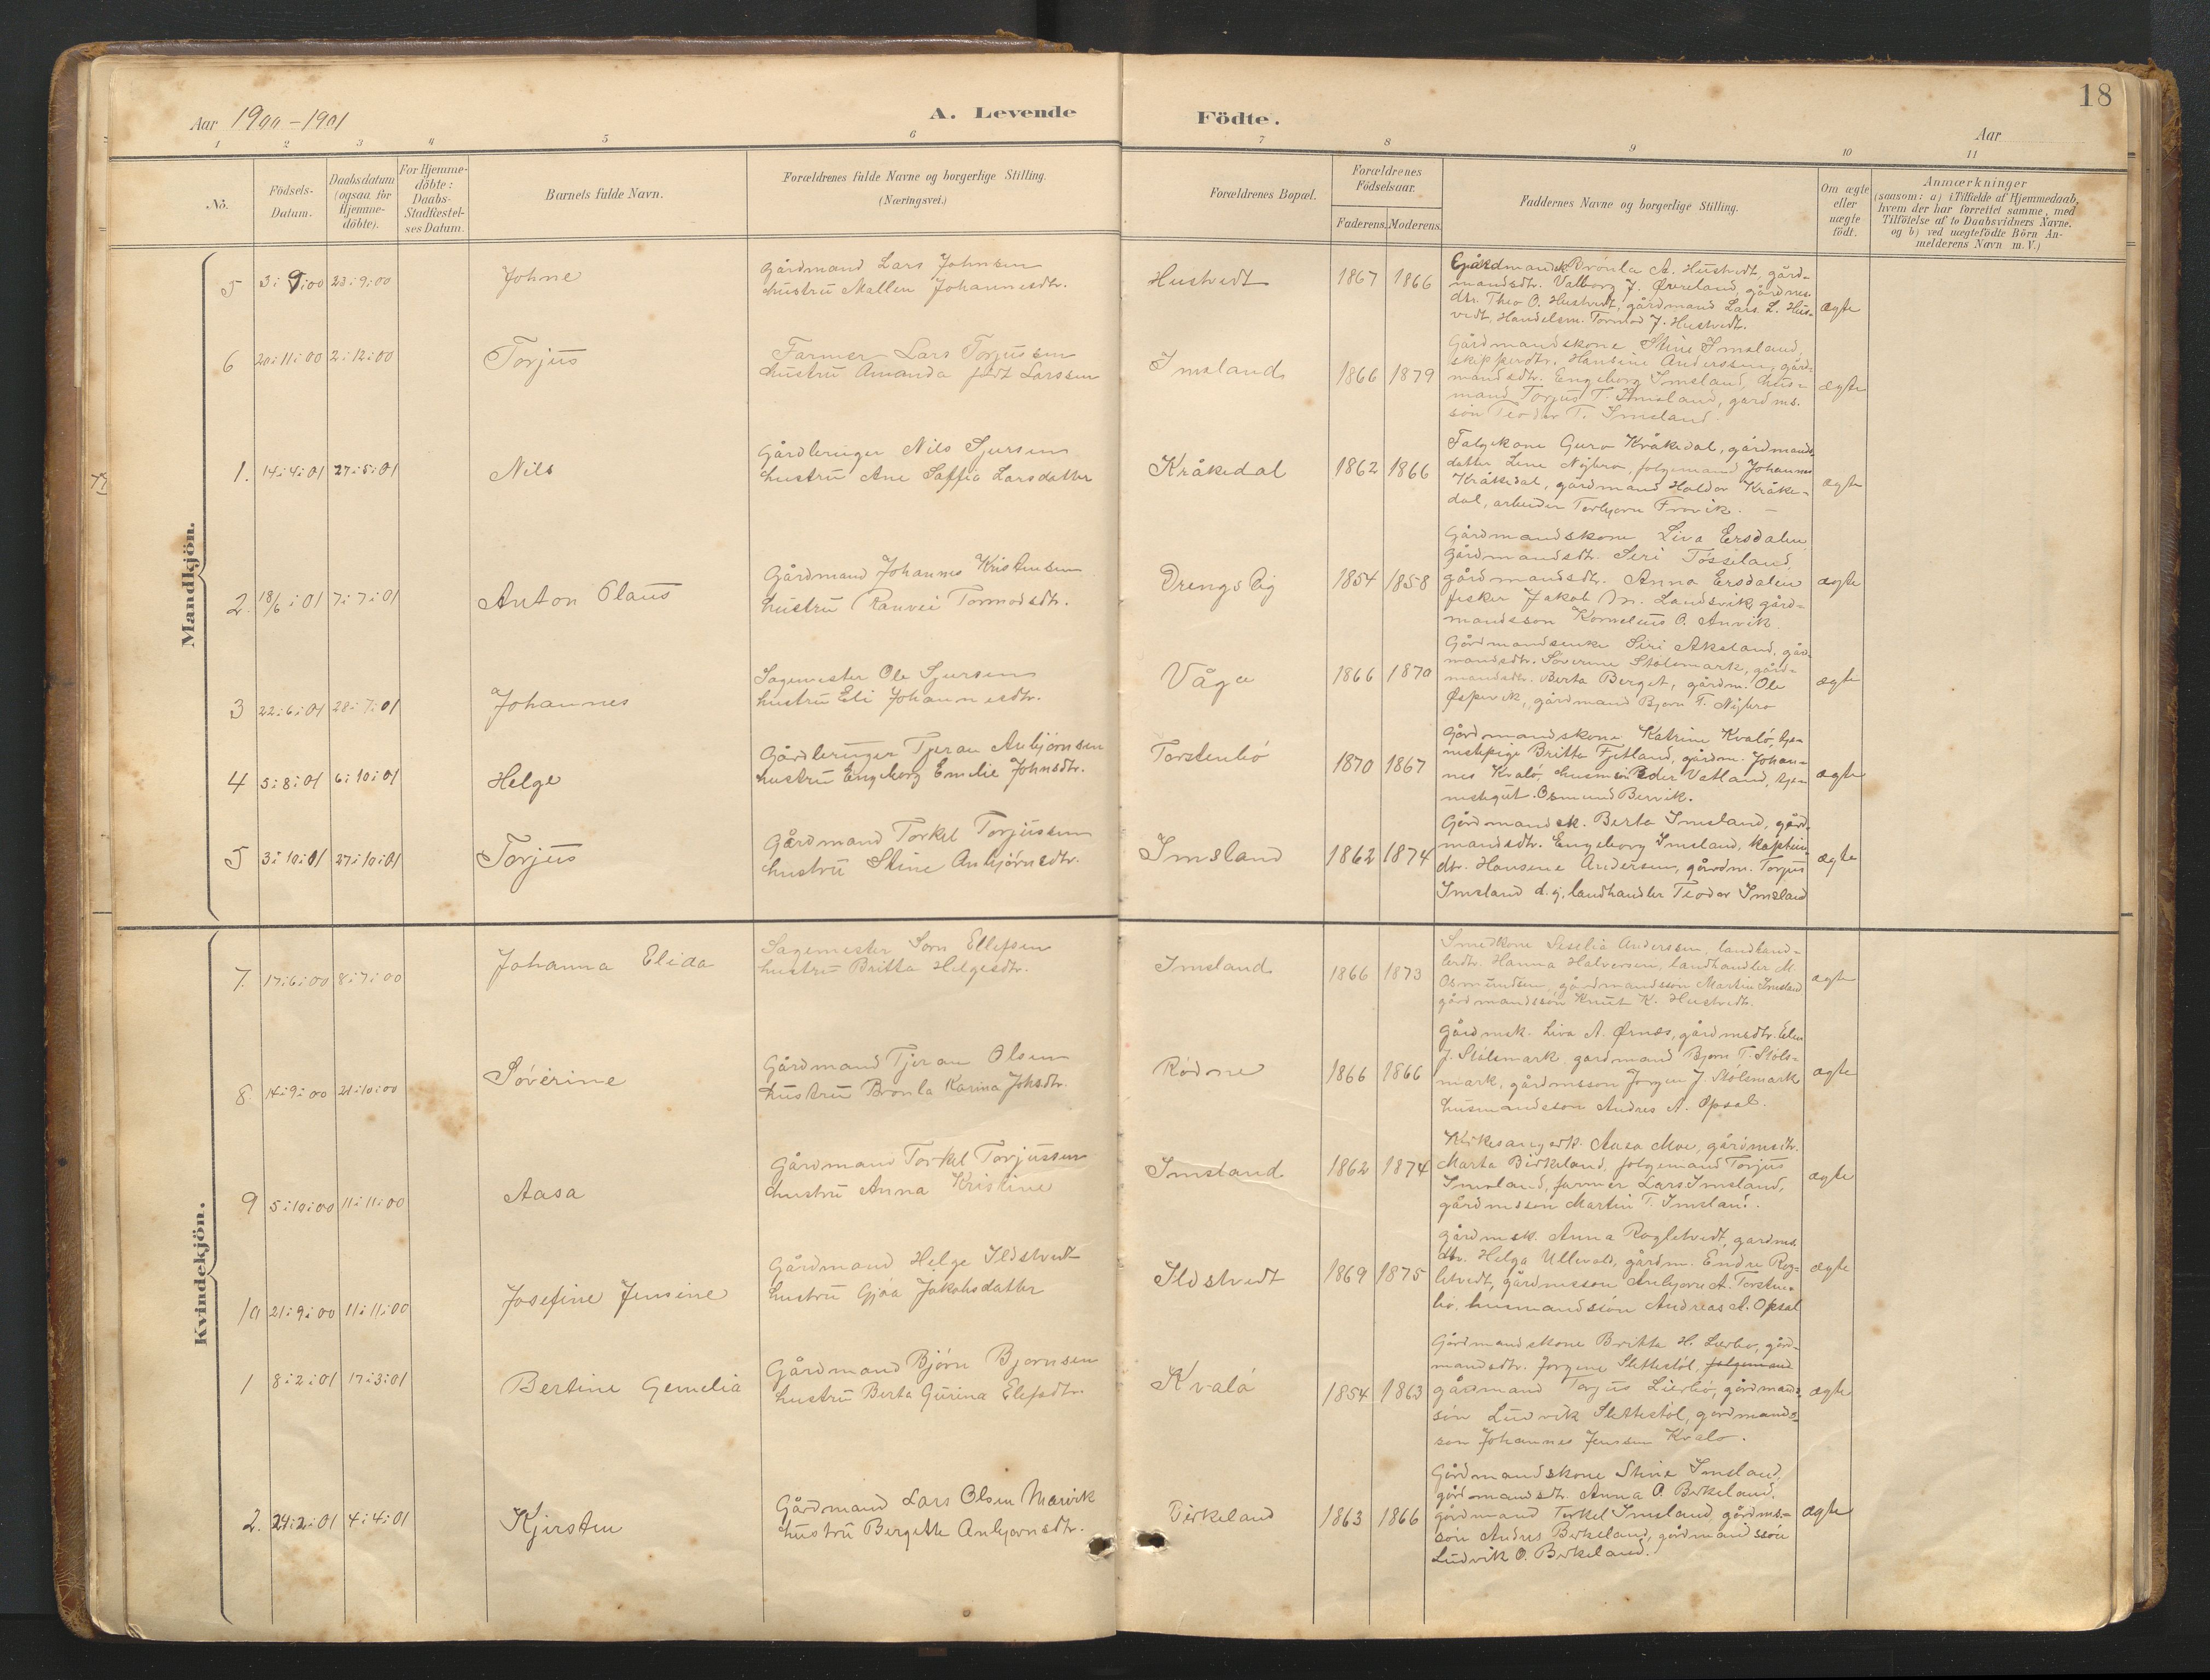 18
Aar 1900-1901
A. Levende
Födte.
Aar
1 2 3 4 5 6 7 8 9 10 11
No.
Födsels-
Datum.
Daabsdatum
(ogsaa for
Hjemme-
döbte).
For Hjemme-
döbte:
Daabs-
Stadfæstel-
ses Datum.
Barnets fulde Navn.
Forældrenes fulde Navne og borgerlige Stilling.
(Næringsvei.)
Forældrenes Bopæl.
Forældrenes
Födselsaar.
Faderens. Moderens.
Faddernes Navne og borgerlige Stilling.
Om ægte
eller
uægte
födt.
Anmærkninger
(saasom: a) i Tilfælde af Hjemmedaab,
hvem der har forrettet samme, med
Tilföielse af to Daabsvidners Navne,
og b) ved uægtefödte Börn An-
melderens Navn m. V.)
Mandkjön.
5 3:9:00 23:9:00 Johne
Gårdmand Lars Johnsen
hustru Mallen Johannesdtr.
Hustvedt 1867 1866
Gårdmandsk. Bronla A. Hustvedt, gård-
mandsdtr. Valborg J. Øvreland, gårdmes.
dtr. Theo O. Hustvedt, gårdmand Lars L. Hus-
vedt, Handelsm. Tormod J. Hustvedt.
ægte
6 20:11:00 2:12:00 Torjus
Farmer Lars Torjussen
hustru Amanda født Larssen
Imsland 1866 1879
Gårdmandskone Stine Imsland,
skipperdtr. Hansine Anderssen, gård-
mandsdtr. Engeborg Imsland, hus-
mand Torjus T. Imsland, gårdms.
søn Teodor T. Imsland
ægte
1. 14:4:01 27:5:01 Nils
Gårdbruger Nils Sjursen
hustru Ane Saffia Larsdatter
Kråkedal 1862 1866
Følgekone Guro Kråkedal, gårdmands-
datter Lene Nybru, følgemand Johannes
Kråkedal, gårdmand Haldor Kråke-
dal, arbeider Torbjørn Frøvik. –
ægte
2. 18/6:01 7:7:01 Anton Olaus
Gårdmand Johannes Kristensen
hustru Ranvei Tormodsdtr.
Drengslig 1854 1858
Gårdmandskone Liva Ersdalen
Gårdmandsdtr. Seri Tøsseland,
gårdmandsdtr. Anna Ersdalen
fisker Jakob M. Landsvik, gård-
mandssøn Kornelius O. Anvik
ægte
3 22:6:01 28:7:01 Johannes
Sagmester Ole Sjursen
hustru Eli Johannesdtr.
Våge 1866 1870
Gårdmandsenke Siri Akeland, går-
mandsdtr. Søverine Stølsmark, gård-
mandsdtr. Berta Berget, gårdm. Ole
Øspevik, gårdmand Bjørn T. Nybro
ægte
4 5:8:01 6:10:01 Helge
Gårdbruger Tjeran Anbjørnsen
hustru Engeborg Emilie Johnsdtr.
Torstenbó 1870 1867
Gårdmandskone Katrine Kvaló, tje-
nestepige Britta Fjetland, gårdm. Johan-
nes Kvaló, husmsøn Peder Vetland, tje-
nestegut Osmund Bervik.
ægte
5 3:10:01 27:10:01 Torjus
Gårdmand Torkel Torjussen
hustru Stine Anbjørnsdtr.
Imsland 1862 1874
Gårdmandsk. Berta Imsland, gård-
mandsdtr. Engeborg Imsland, kaptein
dtr. Hansene Andersen, gårdm. Torjus
Imsland d. y, landhandler Teodor Imsland
ægte
Kvindekjön.
7. 17:6:00 8:7:00 Johanna Elida
Sagemester Sørn Ellefsen
hustru Britta Helgesdtr.
Imsland 1866 1873
Smedkone Seselia Anderssen, landhand-
lerdtr. Hanna Halversen, landhandler M.
Osmundsen, gårdmandssøn Martin Imsland
gårdmandssøn Knut K. Hustvedt.
ægte
8. 14:9:00 21:10:00 Sóvérine
Gårdmand Tjeran Olsen
hustru Bronla Karina Johsdtr.
Ródne 1866 1866
Gårdmsk. Liva A. Ørnæs, gårdmsdtr. Elen
J. Stólsmark, gardmand Bjørn T. Stóls-
mark, gårdmssøn Jorgen J. Stólsmark
husmandssøn Andres A. Opsal.
ægte
9 5:10:00 11:11:00 Aasa
Gårdmand Torkel Torjussen
hustru Anna Kristine
Imsland 1862 1874
Kirkesangerk. Aasa Moe, gårdmsdtr.
Marta Birkeland, følgemand Torjus
Imsland, farmer Lars Imsland,
gårdmssøn Martin T. Imsland.
ægte
10 21:9:00 11:11:00 Josefine Jensine
Gårdmand Helge Ildstvedt
hustru Gjóa Jakobsdatter
Ildstvedt 1869 1875
gårdmsk. Anna Rogletvedt, gardms.
dtr. Helga Ullevold, gårdm. Endre Rog-
letvedt, gårdmssøn Anbjørn A. Torsten-
bó, husmandssón Andreas A. Opsal
ægte
1 8:2:01 17:3:01 Bertine Gemelia
Gårdmand Bjórn Bjornsen
hustru Berta Gurina Elefsdtr.
Kvaló 1854 1863
Gårdmandskone Britta H. Lierbó, gård-
mandsdtr. Jorgene Slettestól, folgemand
gårdmand Torjus Lierbó, gårdmands-
søn Ludvik Slettestól, gårdmands-
søn Johannes Jensen Kvaló.
ægte
2. 24:2:01 4:4:01 Kjersten
Gårdmand Lars Olsen Marvik
hustru Bergitte Anbjornsdtr.
Birkeland 1863 1866
Gårdmandskone Stine Imsland,
gårdmandsdtr. Anna O. Birkeland,
gårdmand Torkel Imsland, gårdms-
són Andres Birkeland, gårdmandssón
Ludvik O. Birkeland.
ægte